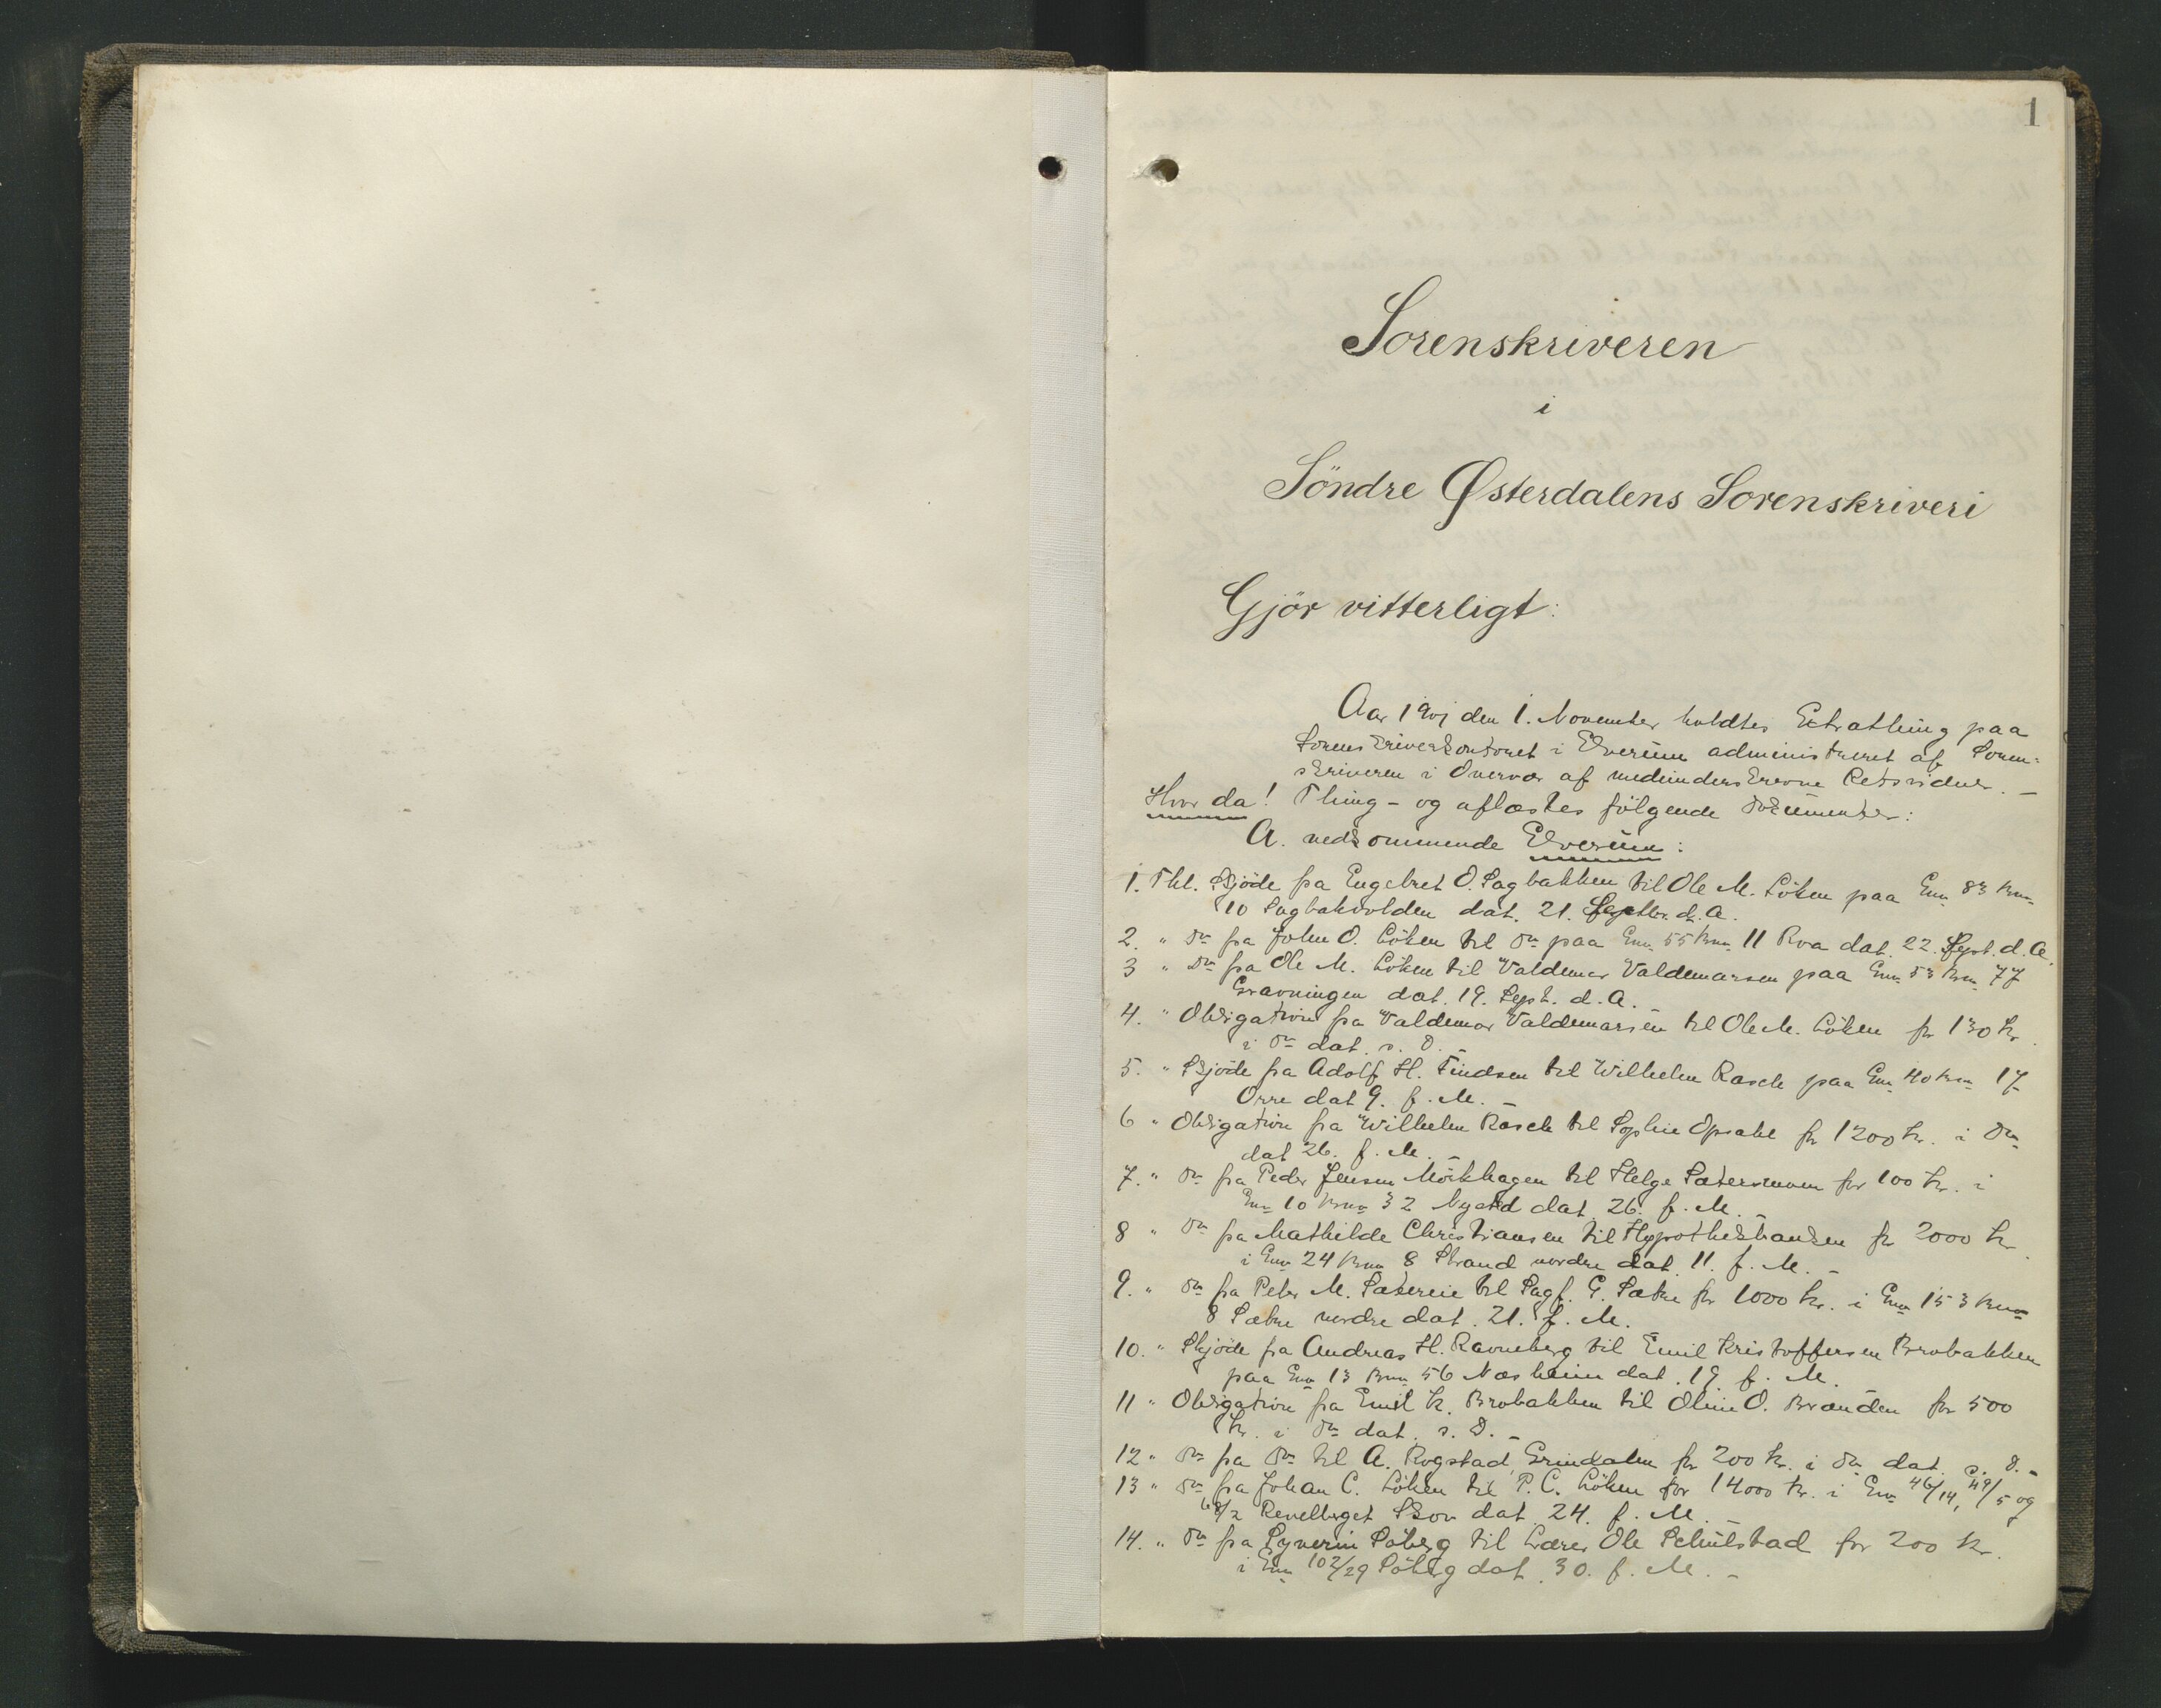 1
Sorenskriveren
i
Söndre Østerdalens Sorenskriveri
Gjör vitterligt:
Aar 1901 den 1. November holdtes Extrathing paa
Sorenskriverkontoret i Elverum administreret af Soren-
skriveren i Overvær af medunderskrevne Retsvidner. –
Hvor da! Thing- og aflæstes fölgende Dokumenter:
A. vedkommende Elverum:
1. Thl. Skjöde fra Engebret O. Sagbakken til Ole M. Löken paa Gnr. 83 Bnr.
10 Sagbakvolden dat. 21. Septbr. d. A.
2. " Do fra John O. Löken til Do paa Gnr. 55 Bnr. 11 Roa dat. 22. Sept. d. A.
3 " Do fra Ole M. Löken til Valdemar Valdemarsen paa Gnr. 53 Bnr. 77
Gravningen dat. 19. Sept. d. A.
4. " Obligation fra Valdemar Valdemarsen til Ole M. Löken for 130 Kr.
i Do dat. s. D. –
5. " Skjöde fra Adolf H. Findsen til Wilhelm Rasch paa Gnr. 40 Bnr. 17
Orre dat 9. f. M. –
6 " Obligation fra Wilhelm Rasch til Sophie Opsahl for 1200 Kr. i Do
dat 26. f. M. –
7. " Do fra Peder Jensen Mörkhagen til Helge Sætersmoen for 100 Kr. i
Gnr 10 Bnr 32 Nyard dat. 26. f. M. –
8 " Do fra Mathilde Christiansen til Hypothekbanken for 2000 Kr.
i Gnr 24 Bnr 8 Strand nordre dat. 11. f. M. –
9. " Do fra Peter M. Sætereie til Sagf. G. Sætre for 1000 Kr. i Gnr 153 Bnr
8 Sætre nordre dat. 21. f. M.
10. " Skjöde fra Andreas H. Ravneberg til Emil Kristoffersen Brobakken
paa Gnr 13 Bnr 56 Næsheim dat. 19 f. M.
11 " Obligation fra Emil K. Brobakken til Oline O. Brænden for 500
Kr. i Do dat. s. D. –
12 " Do fra Do til A. Rogstad, Grindalen for 200 Kr. i Do dat. s. D. –
13 " Do fra Johan C. Löken til P. C. Löken for 14000 Kr. i Gnr 46/14, 49/5 og
68/2 Revelberget Skov dat. 24. f. M. –
14. " Do fra Syverin Söberg til Lærer Ole Schulstad for 200 Kr.
i Gnr 102/29 Söberg dat. 30. f. M. –